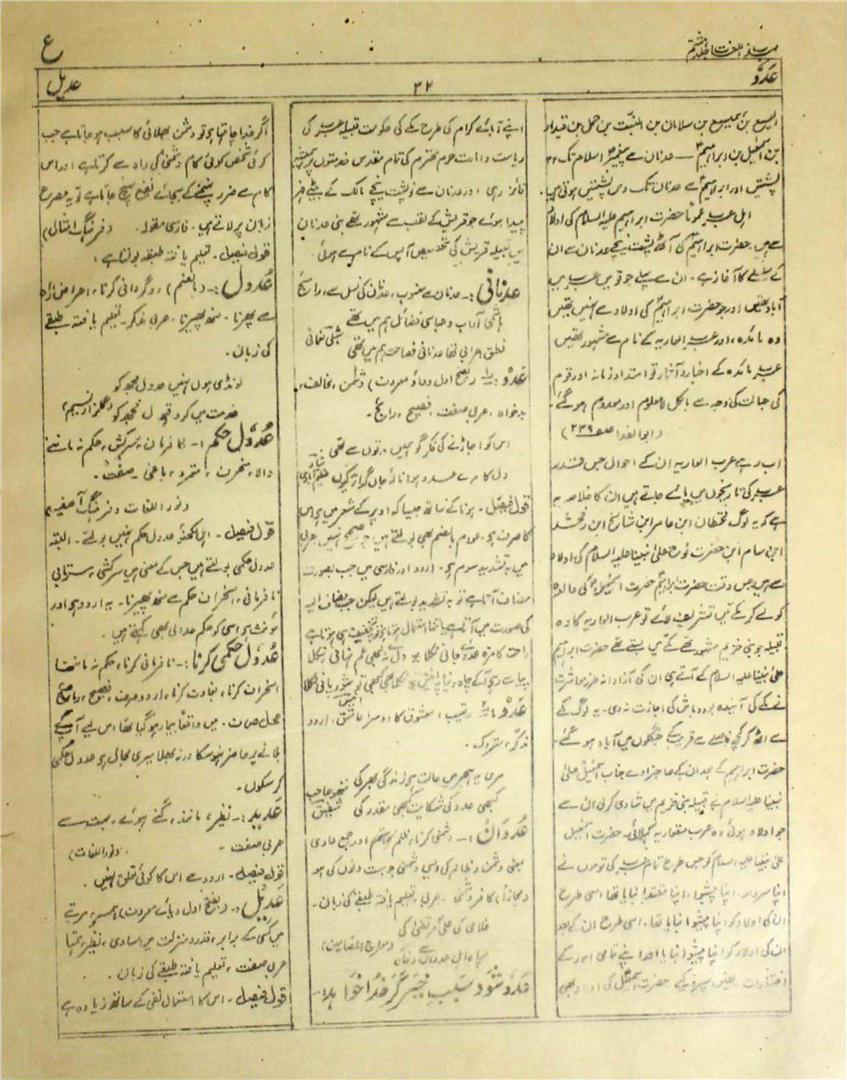 مہذب اللغت جلد ہشتم
ع
عَدُوّ
۳۲
عدیل
الیسع بن ہمیسع بن سلامان بن النبت بن حمل بن قیدار
بن اسمٰعیل بن ابراہیمؑ — عدنان سے پیغمبرؐ اسلام تک ۲۲
پشتیں اور ابراہیمؑ سے عدنان تک دس پشتیں ہوتی ہیں
اہل عرب عموماً حضرت ابراہیم علیہ السلام کی اولاد
سے ہیں۔ حضرت ابراہیمؑ کی آٹھ پشت نیچے عدنان سے ان
کے سلسلے کا آغاز ہے۔ ان سے پہلے جو قومیں عرب میں
آباد تھیں اور جو حضرت ابراہیمؑ کی اولاد سے نہیں تھیں
وہ بائدہ، اور عرب العاربہ کے نام سے مشہور تھیں
عرب بائدہ کے اخبار و آثار تو امتداد زمانہ اور قوم
کی جہالت کی وجہ سے بالکل نامعلوم اور معدوم ہو گئے۔
(ابوالفدا صفحہ ۲۳۹)
اب رہے عرب العاربہ ان کے احوال جس قدر
عرب کی تاریخوں میں پائے جاتے ہیں ان کا خلاصہ یہ
ہے کہ یہ لوگ قحطان ابن عامر ابن شارخ ابن ارفخشد
ابن سام ابن حضرت نوح علیٰ نبینا علیہ السلام کی اولاد
سے ہیں جس وقت حضرت ابراہیمؑ حضرت اسمٰعیلؑ کی والدہ
کو لے کر مکے میں تشریف لائے تو عرب العاربہ کا وہ
قبیلہ جو بنی جرہم مشہور تھے مکے میں بستے تھے حضرت ابراہیم
علیٰ نبینا علیہ السلام کے آتے ہی ان کی آزادانہ طرز معاشرت
نے مکے کی آئندہ بود و باش کی اجازت نہ دی۔ یہ لوگ مکے
سے اٹھ کر کچھ فاصلے سے قریب کے جنگلوں میں آباد ہو گئے۔
حضرت ابراہیم کے بعد ان کے صاحبزادے جناب اسمٰعیل علیٰ
نبینا علیہ السلام نے قبیلہ بنی جرہم میں شادی کر لی ان سے
جو اولاد ہوئی وہ عرب متعاربہ کہلائی۔ حضرت اسمٰعیل
علیٰ نبینا علیہ السلام کو جس طرح تمام عرب کی قوموں نے
اپنا سردار، اپنا پیشوا، اپنا مقتدا بنایا تھا اسی طرح
ان کی اولاد کو اپنا پیشوا بنایا تھا۔ اسی طرح ان کے بعد
ان کی اولاد کو اپنا پیشوا بنایا اور اپنے تمامی امور کے
اختیارات انھیں سپرد کئے حضرت اسمٰعیلؑ کی اولاد بھی
اپنے آبائے کرام کی طرح مکے کی حکومت قبیلہ عرب کی
ریاست و امانت حرم محترم کی تمام مقدس خدمتوں پر ہمیشہ
فائز رہی اور عدنان سے نو پشت نیچے مالک کے بیٹے فہر
پیدا ہوئے جو قریش کے لقب سے مشہور تھے بنی عدنان
میں قبیلہ قریش کی تخصیص آپس کے نام سے ہوئی۔
عدنانی:۔ عدنان سے منسوب، عدنان کی نسل سے، رائج
ہاشمی آداب و عباسی فضائل ہم میں تھے
نطق اعرابی تھا عدنانی فصاحت ہم میں تھی
شبلی نعمانی
عَدُوّ:۔ (بفتح اول و واؤ معروف) دشمن، مخالف،
بدخواہ، عربی صفت، فصیح، رائج۔
اس کو اجاڑنے کی فکر گو ہمیں برقوں سے تھی
دل کا مرے عدو ہوا نالۂ جاں گداز کیوں
شاد عظیم آبادی
قول فیصل۔ ہونا کے ساتھ جیسا کہ اوپر کے شعر میں ہے اس
کا صرف ہے۔ عوام بالضم بھی بولتے ہیں جو صحیح نہیں عربی
میں بہ تشدید سوم ہے۔ اردو اور فارسی میں جب بصورت
مضاف آتا ہے تو بہ تشدید بولتے ہیں لیکن جب مضاف الیہ
کی صورت میں آتا ہے یا تنہا استعمال ہوتا ہے تو بہ تخفیف ہی ہوتا ہے
عَدُوّ:۔ رقیب، معشوق کا دوسرا عاشق، اردو
مذکر، متروک۔
مری ہے ہجر میں حالت یہ زندگی بھر کی
کبھی عدو کی شکایت کبھی مقدر کی
عُدوان:۔ دشمنی کرنا، ظلم و ستم اور جمع عادی
بمعنی دشمن و ظالم کی ویسی دشمنی جو بہت دنوں کی ہو
(مجازاً) کافر دشمنی۔ عربی، تعلیم یافتہ طبقے کی زبان۔
غلامی کی علی مرتضیٰ کی
(معراج المضامین)
عَدُو شَوَد سَبَبِ خَیر گَر خُدا خواہد:۔
اگر خدا چاہتا ہے تو دشمن بھلائی کا سبب ہو جاتا ہے جب
کوئی شخص کوئی کام دشمنی کی راہ سے کرتا ہے اور اس
کام سے ضرر پہنچنے کے بجائے نفع پہنچ جاتا ہے تو یہ مصرع
زبان پر لاتے ہیں۔ فارسی مقولہ۔ (فرہنگ امثال)
قول فیصل۔ تعلیم یافتہ طبقہ بولتا ہے،
عُدُول:۔ (بالضم) روگردانی کرنا، اعراض، راہ
سے پھرنا۔ منھ پھیرنا۔ عربی مذکر۔ تعلیم یافتہ طبقے
کی زبان۔
لونڈی ہوں نہیں عدول مجھ کو
خدمت میں کرو قبول مجھ کو (گلزار نسیم)
عُدول حکم:۔ نافرمان، سرکش، حکم نہ ماننے
والا، منحرف، متمرد، باغی۔ صفت۔
(نور اللغات و فرہنگ آصفیہ)
قول فیصل۔ اہل لکھنؤ عدول حکم نہیں بولتے۔ البتہ
عدول حکمی بولتے ہیں جس کے معنی ہیں سرکشی، سرتابی
نافرمانی، انحراف حکم سے منھ پھیرنا۔ یہ اردو ہے اور
مونث ہے اسی کو حکم عدولی بھی کہتے ہیں۔
عُدول حکمی کرنا:۔ نافرمانی کرنا، حکم نہ ماننا
انحراف کرنا، بغاوت کرنا، اردو صرف، فصیح، رائج
محل صرف۔ میں واقعاً بیمار ہو گیا تھا اس لیے آپ کے
بلانے پر حاضر نہ ہو سکا ورنہ بھلا میری مجال ہے جو عدول حکمی
کر سکوں۔
عَدید:۔ نظیر، مانند، گنے ہوئے، بہت سے
عربی صفت۔ (نور اللغات)
قول فیصل۔ اردو سے اس کا کوئی تعلق نہیں۔
عَدِیل:۔ (بفتح اول و یائے معروف) ہمسر، مرتبے
میں کسی کے برابر، قدر و منزلت میں مساوی، نظیر، ہمتا
عربی صفت، تعلیم یافتہ طبقے کی زبان۔
قول فیصل۔ اس کا استعمال نفی کے ساتھ زیادہ ہے